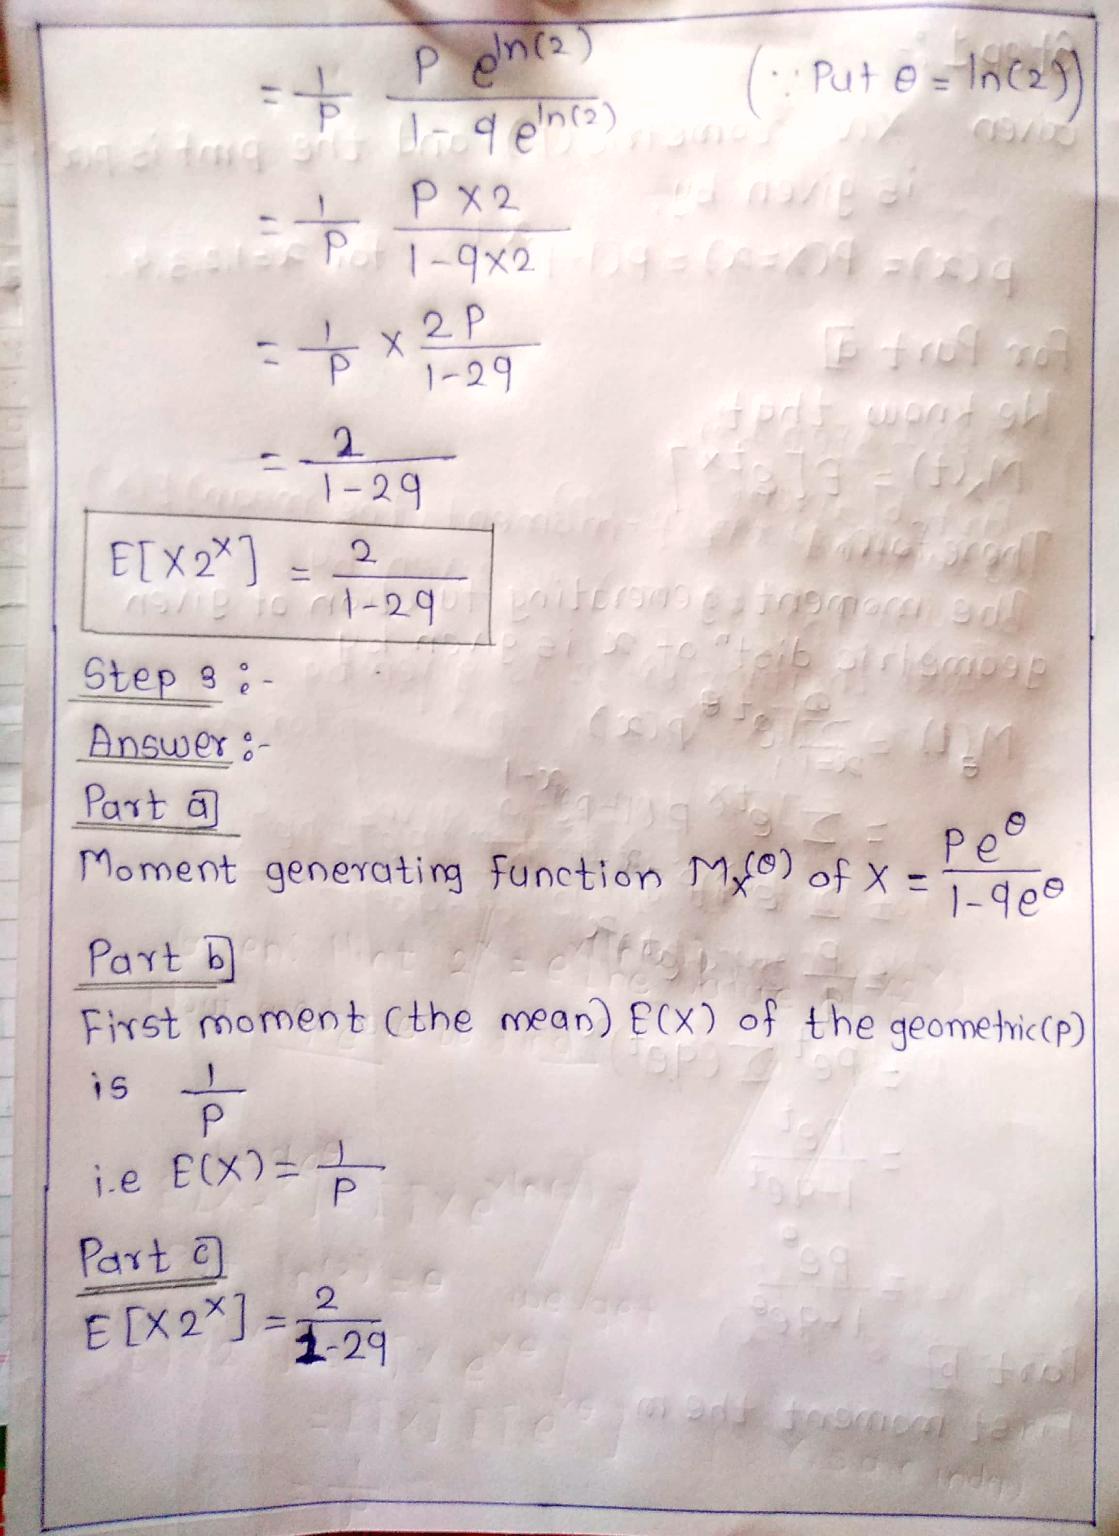 = 1/P P e^ln(2) / 1-q e^ln(2) (∵ Put θ = ln(2))
= 1/P P×2 / 1-q×2
= 1/P × 2P / 1-2q
= 2 / 1-2q
E[X2^X] = 2 / 1-2q
Step 3 :-
Answer :-
Part a]
Moment generating function M_X(θ) of X = Pe^θ / 1-qe^θ
Part b]
First moment (the mean) E(X) of the geometric(p)
is 1/P
i.e E(X) = 1/P
Part c]
E[X2^X] = 2 / 1-2q